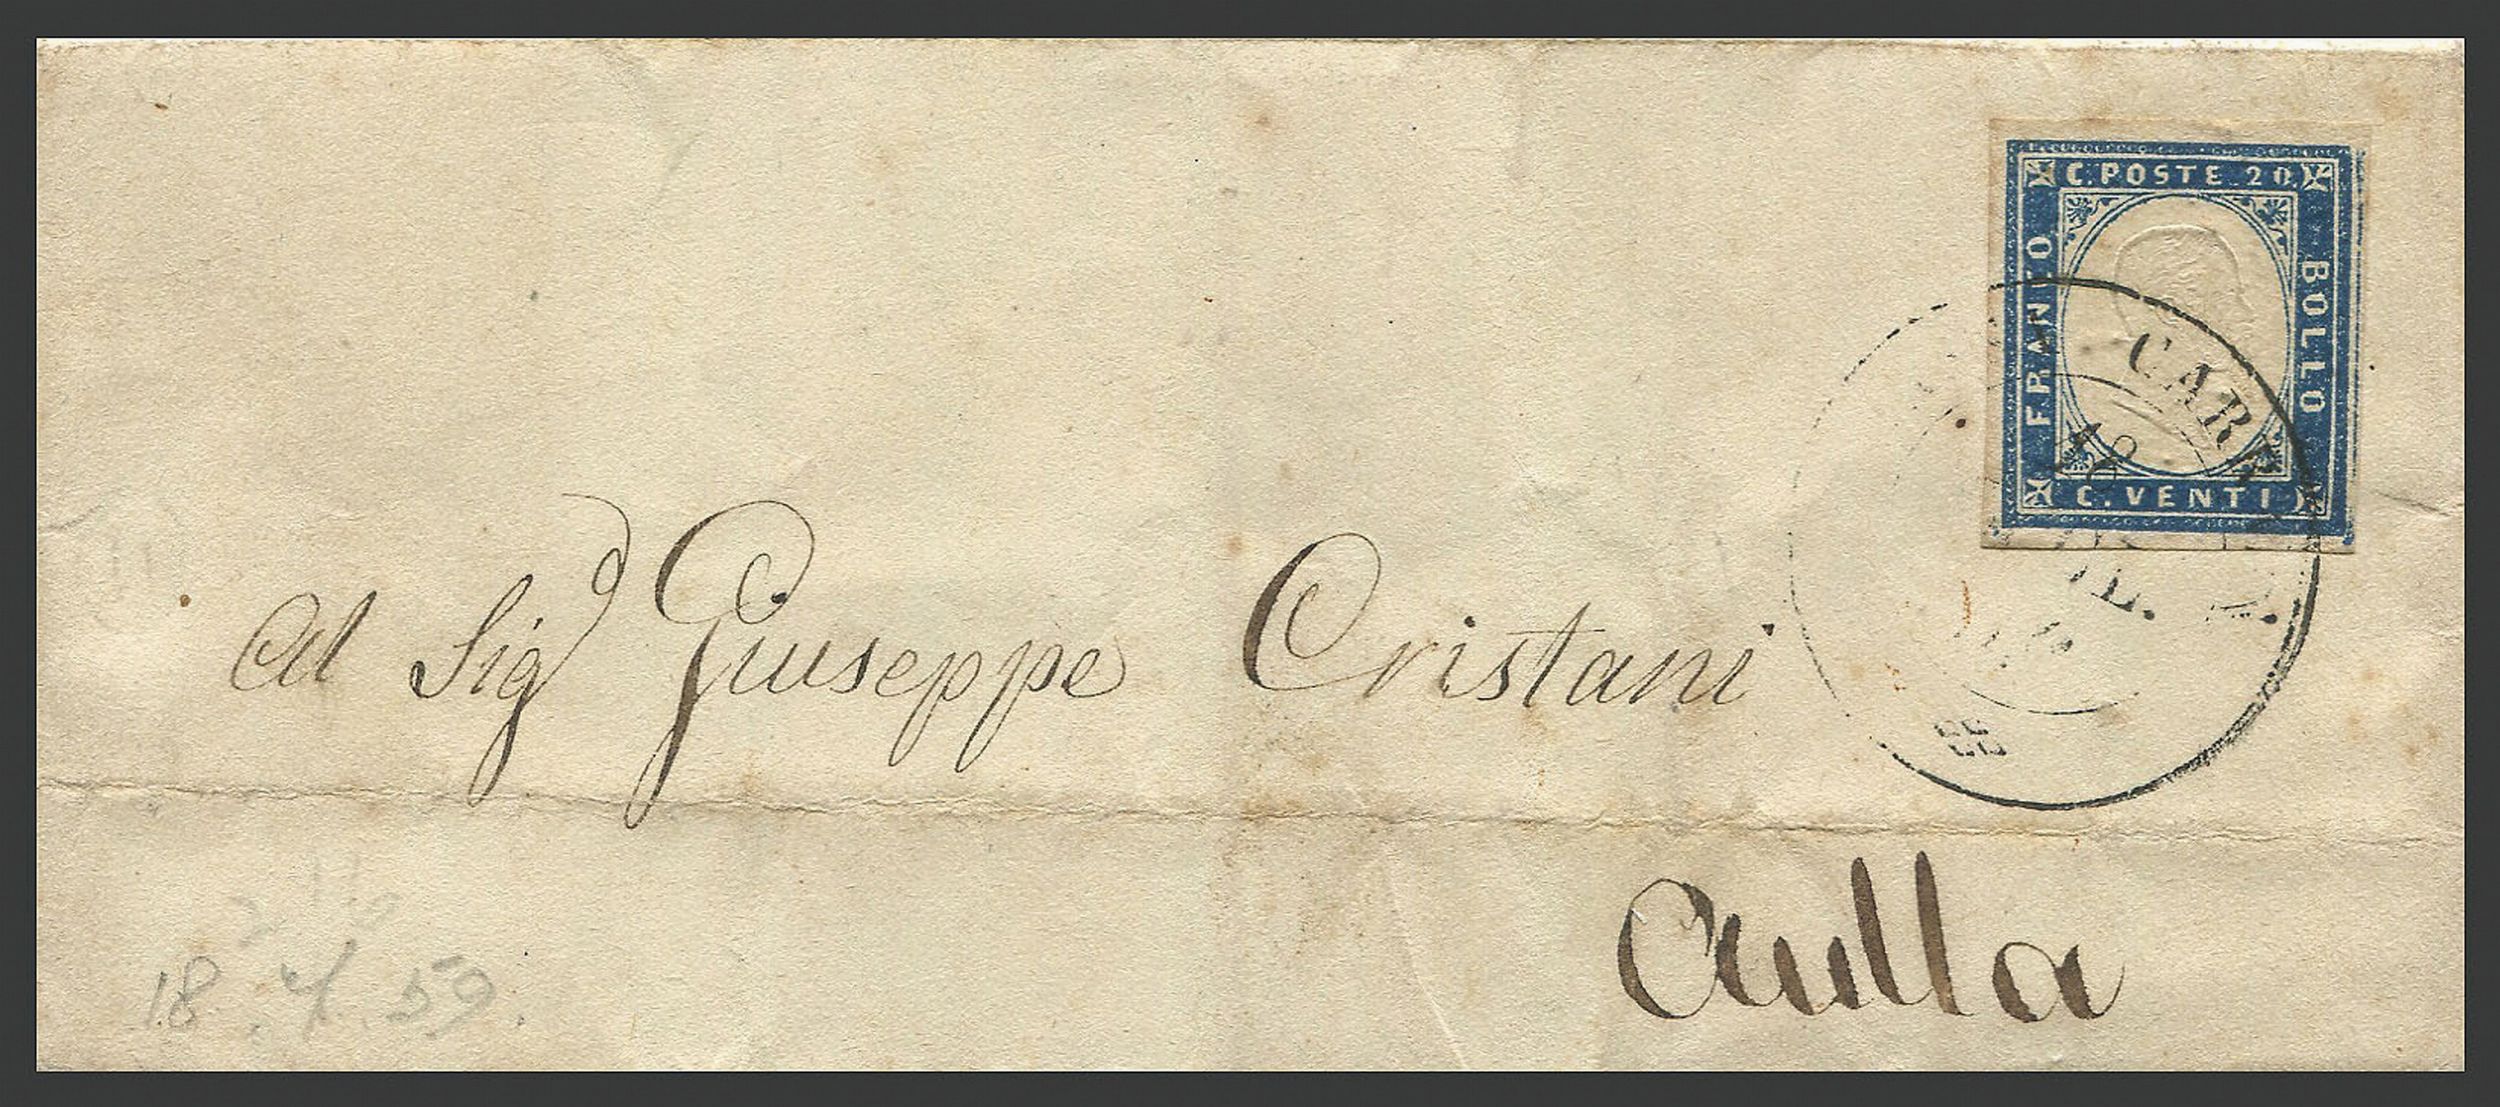 C. POSTE 20.
FRANCO
BOLLO
C. VENTI
CARR
18
Al Sig.r Giuseppe Cristani
Aulla
18. 4. 59.